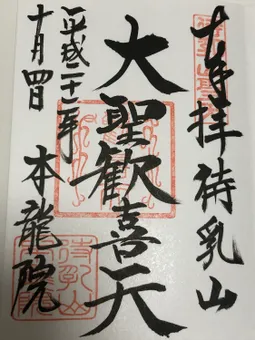 奉拝 待乳山
大聖歡喜天
平成二十二年
十月四日
本龍院